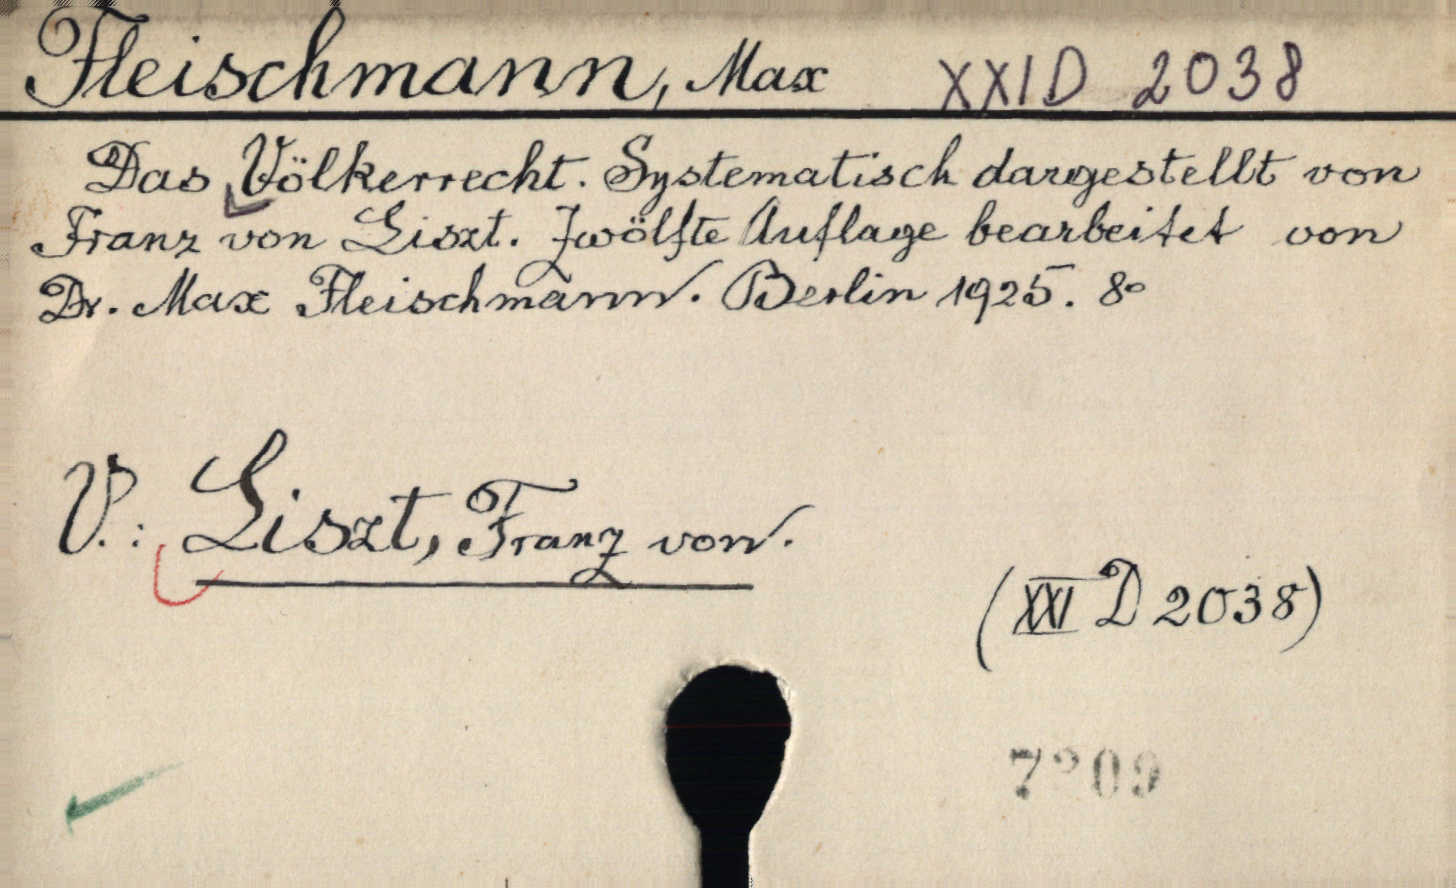 Fleischmann, Max XXI D 2038
Das Völkerrecht. Systematisch dargestellt von
Franz von Liszt. Zwölfte Auflage bearbeitet von
Dr. Max Fleischmann. Berlin 1925. 8°
V.: Liszt, Franz von.
(XXI D 2038)